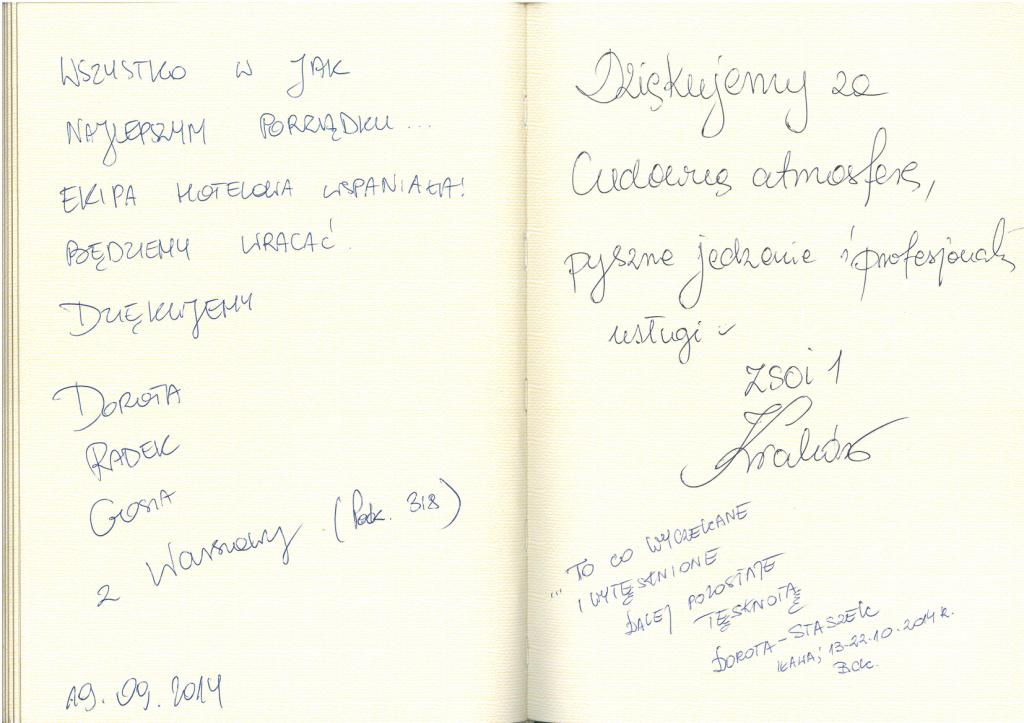 WSZYSTKO W JAK
NAJLEPSZYM PORZĄDKU...
EKIPA HOTELOWA WSPANIAŁA!
BĘDZIEMY WRACAĆ.
DZIĘKUJEMY
DOROTA
RADEK
GOSIA
Z Warszawy (Pok. 318)
19.09.2014
Dziękujemy za
Cudowną atmosferę,
pyszne jedzenie i profesjonal
usługi
ZSOI 1
Kraków
... TO CO WYCZEKANE
I WYTĘSKNIONE
DALEJ POZOSTAJE
TĘSKNOTĄ
DOROTA-STASZEK
13-22.10.2014 R.